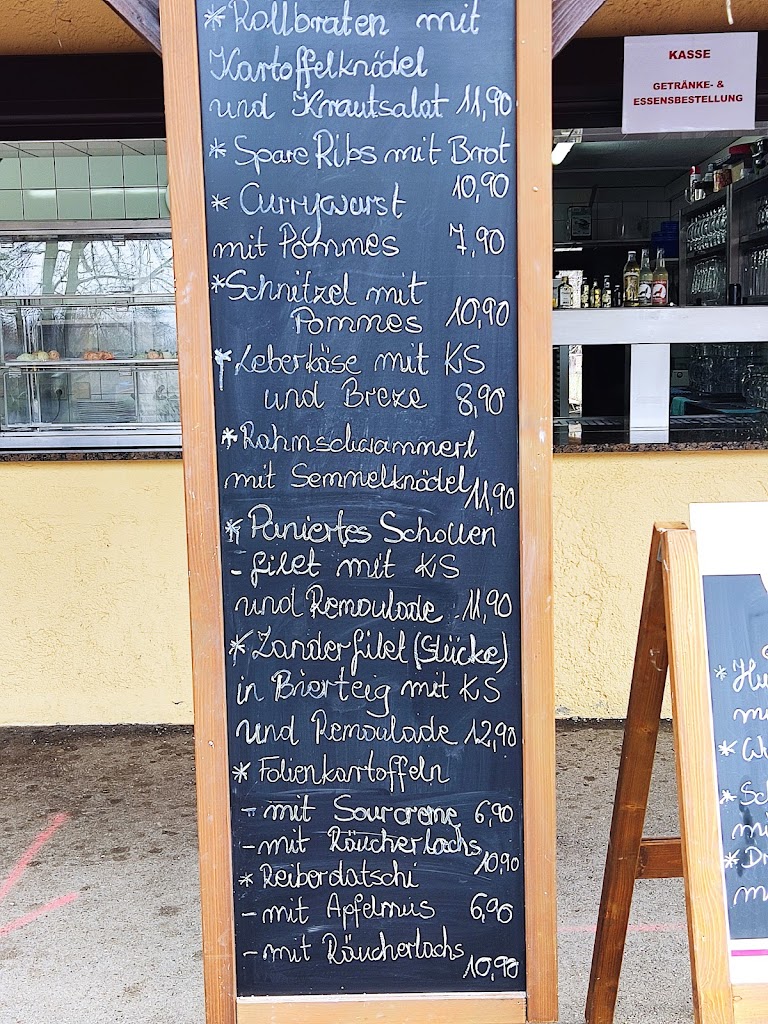 * Rollbraten mit
Kartoffelknödel
und Krautsalat 11,90
* Spare Ribs mit Brot
10,90
* Currywurst
mit Pommes 7,90
* Schnitzel mit
Pommes 10,90
* Leberkäse mit KS
und Breze 8,90
* Rahmschwammerl
mit Semmelknödel 11,90
* Paniertes Schollen
- filet mit KS
und Remoulade 11,90
* Zanderfilet (Stücke)
in Bierteig mit KS
und Remoulade 12,90
* Folienkartoffeln
- mit Sourcreme 6,90
- mit Räucherlachs
10,90
* Reiberdatschi
- mit Apfelmus 6,90
- mit Räucherlachs
10,90
KASSE
GETRÄNKE- &
ESSENSBESTELLUNG